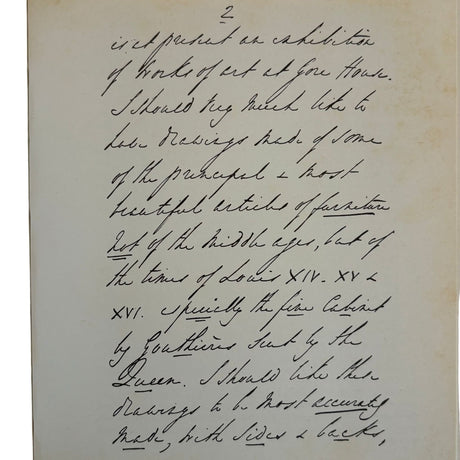 2
is at present an exhibition
of works of art at Gore House.
I should very much like to
have drawings made of some
of the principal & most
beautiful articles of furniture
not of the middle ages, but of
the times of Louis XIV. XV &
XVI. especially the fine Cabinet
by Gouthières sent by the
Queen. I should like these
drawings to be most accurately
made, with sides & backs,